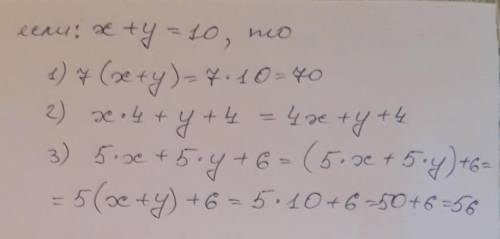 если: x+y=10, то
1) 7(x+y)=7·10=70
2) x·4+y+4 =4x+y+4
3) 5·x+5·y+6=(5·x+5·y)+6=
=5(x+y)+6=5·10+6=50+6=56